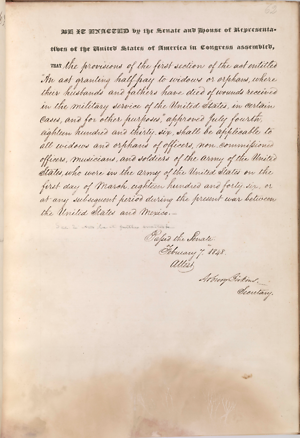 BE IT ENACTED by the Senate and House of Representa-
tives of the United States of America in Congress assembled,
THAT the provisions of the first section of the act entitled
"An act granting half pay to widows or orphans, where
their husbands and fathers have died of wounds received
in the military service of the United States, in certain
cases, and for other purposes," approved July fourth,
eighteen hundred and thirty six, shall be applicable to
all widows and orphans of officers, non commissioned
officers, musicians, and soldiers of the Army of the United
States, who were in the army of the United States on the
first day of March, eighteen hundred and forty six, or
at any subsequent period during the present war between
the United States and Mexico.
Passed the Senate
February 7, 1848.
Attest,
Asbury Dickins
Secretary.